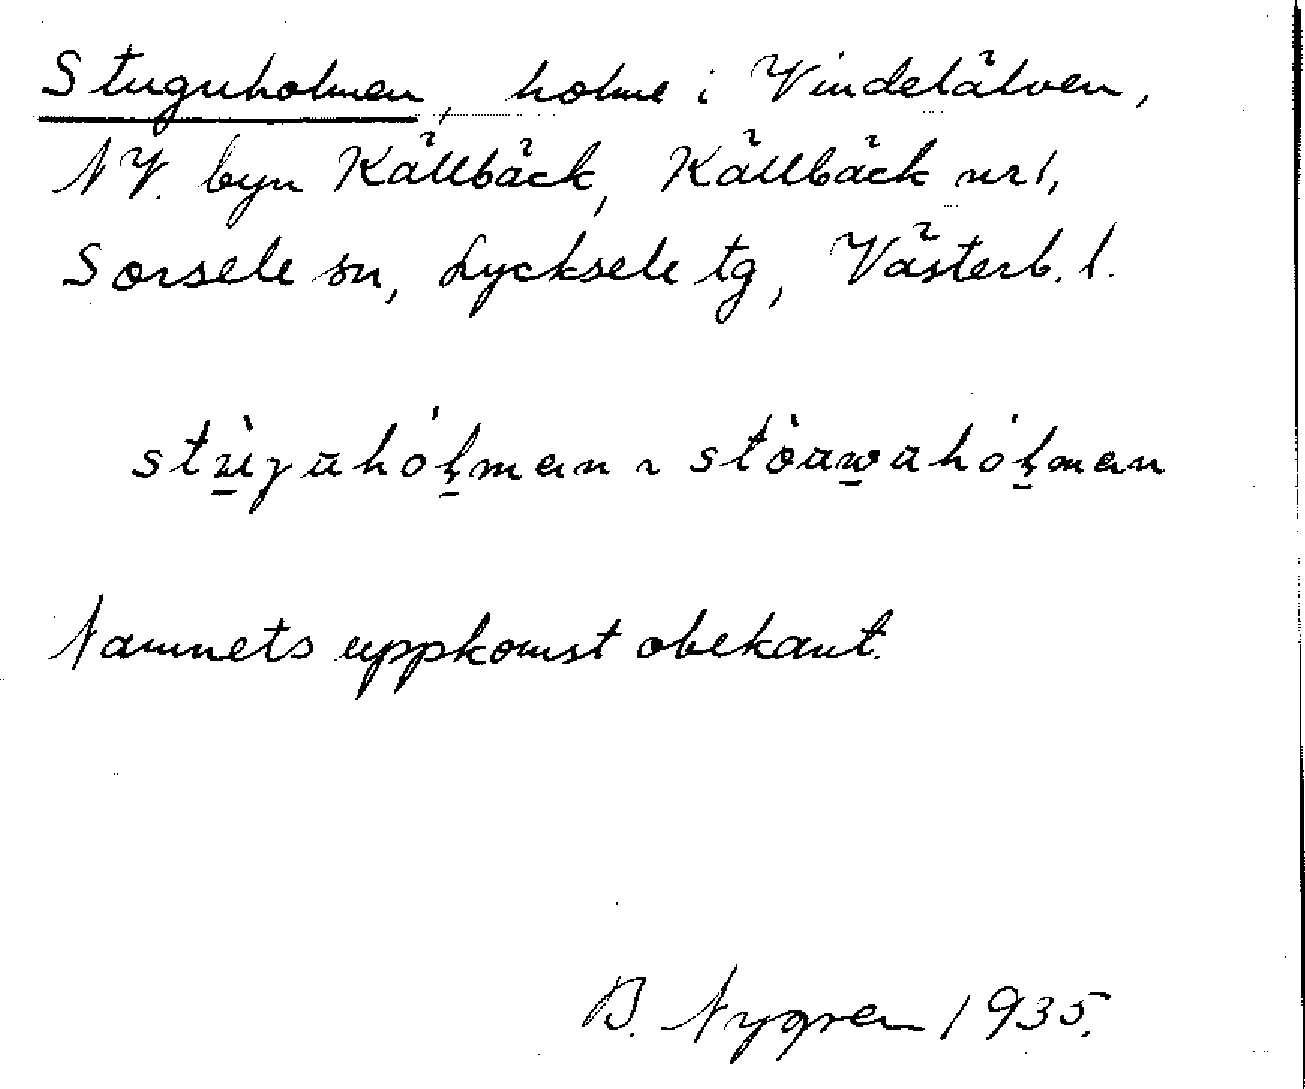 Stuguholmen, holme i Vindelälven,
NV. byn Källbäck, Källbäck nr 1,
Sorsele sn, Lycksele tg, Västerb. l.
stùgahóḷman ~ stòawahóḷman
Namnets uppkomst obekant.
B. Nygren 1935.